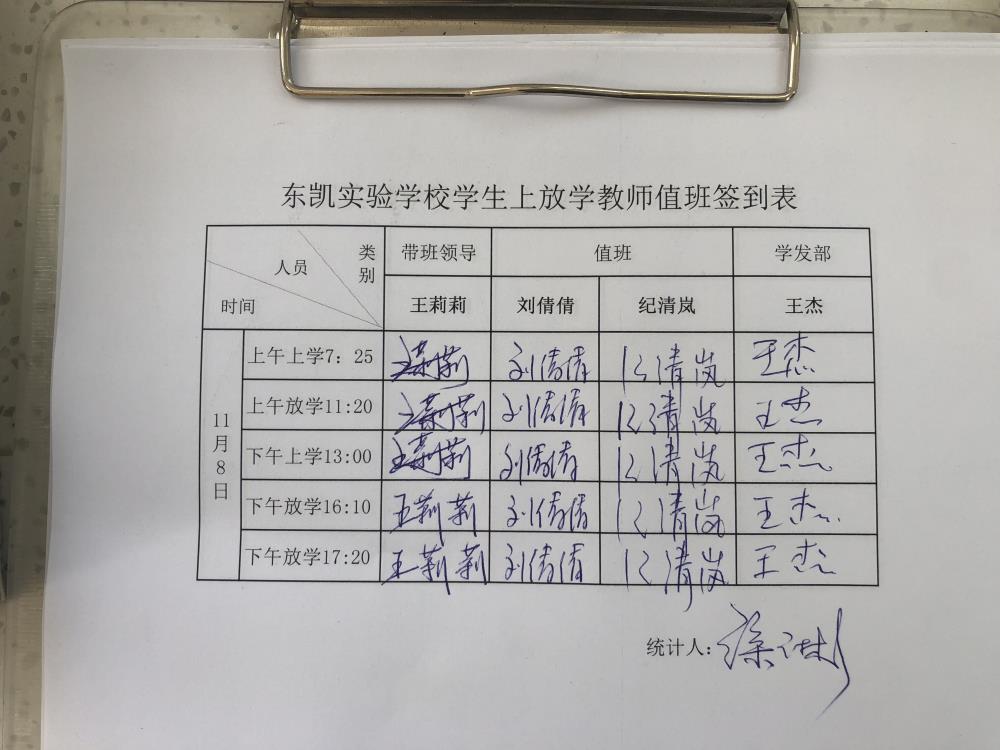 东凯实验学校学生上放学教师值班签到表
类别 人员 时间 带班领导 值班 学发部
王莉莉 刘倩倩 纪清岚 王杰
11月8日
上午上学7：25 王莉莉 刘倩倩 纪清岚 王杰
上午放学11:20 王莉莉 刘倩倩 纪清岚 王杰
下午上学13:00 王莉莉 刘倩倩 纪清岚 王杰
下午放学16:10 王莉莉 刘倩倩 纪清岚 王杰
下午放学17:20 王莉莉 刘倩倩 纪清岚 王杰
统计人：